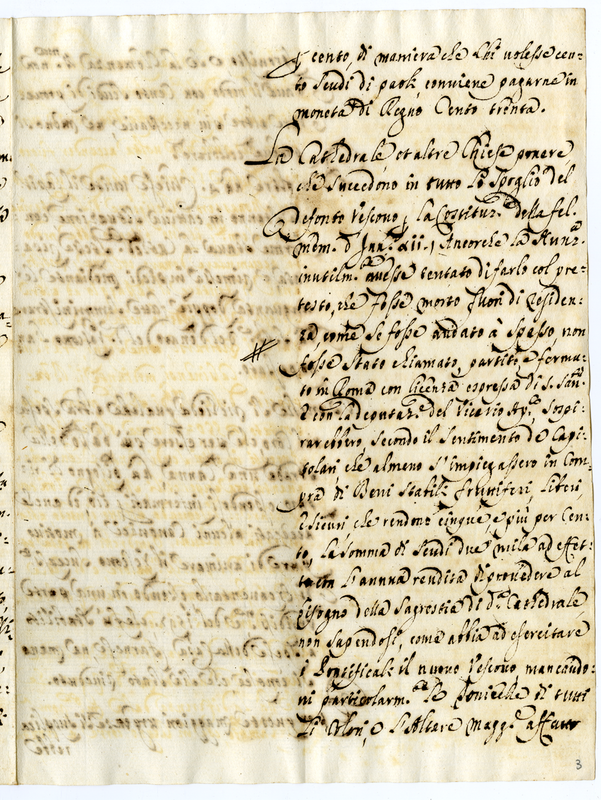 p cento, di maniera che chi volesse cen=
to scudi di paoli, conviene pagarne in
moneta di Regno Cento trenta.
La Cathedrale, et altre Chiese povere
che succedono in tutto lo spoglio del
defonto Vescovo p la Costituz.e della fel.
mem. d'Inn.o XII., Ancorche la Nunz.a
inutilm.e avesse tentato di farlo col pre=
testo, che fosse morto fuori di residen=
za, come se fosse andato à spasso, non
fosse stato chiamato, partito e ferma=
to in Roma con licenza espressa di S. San.tà
e con la deputaz.e del Vicario Ap.co sospi=
rarebbero, secondo il sentimento de Capi=
tolari che almeno s'impiegassero in Com=
pra di Beni stabili fruttiferi, liberi,
e sicuri che rendono cinque, e più per Cen=
to, la somma di scudi due mila ad effet=
to con l'annua rendita di provedere al
bisogno della Sagrestia di d.a Cathedrale
non sapendosi, come abbia ad esercitare
i Pontificali il nuovo Vescovo, mancando=
vi particolarm.te le Pianete di tutti
li Colori, e l'Altare magg.e affatto
3